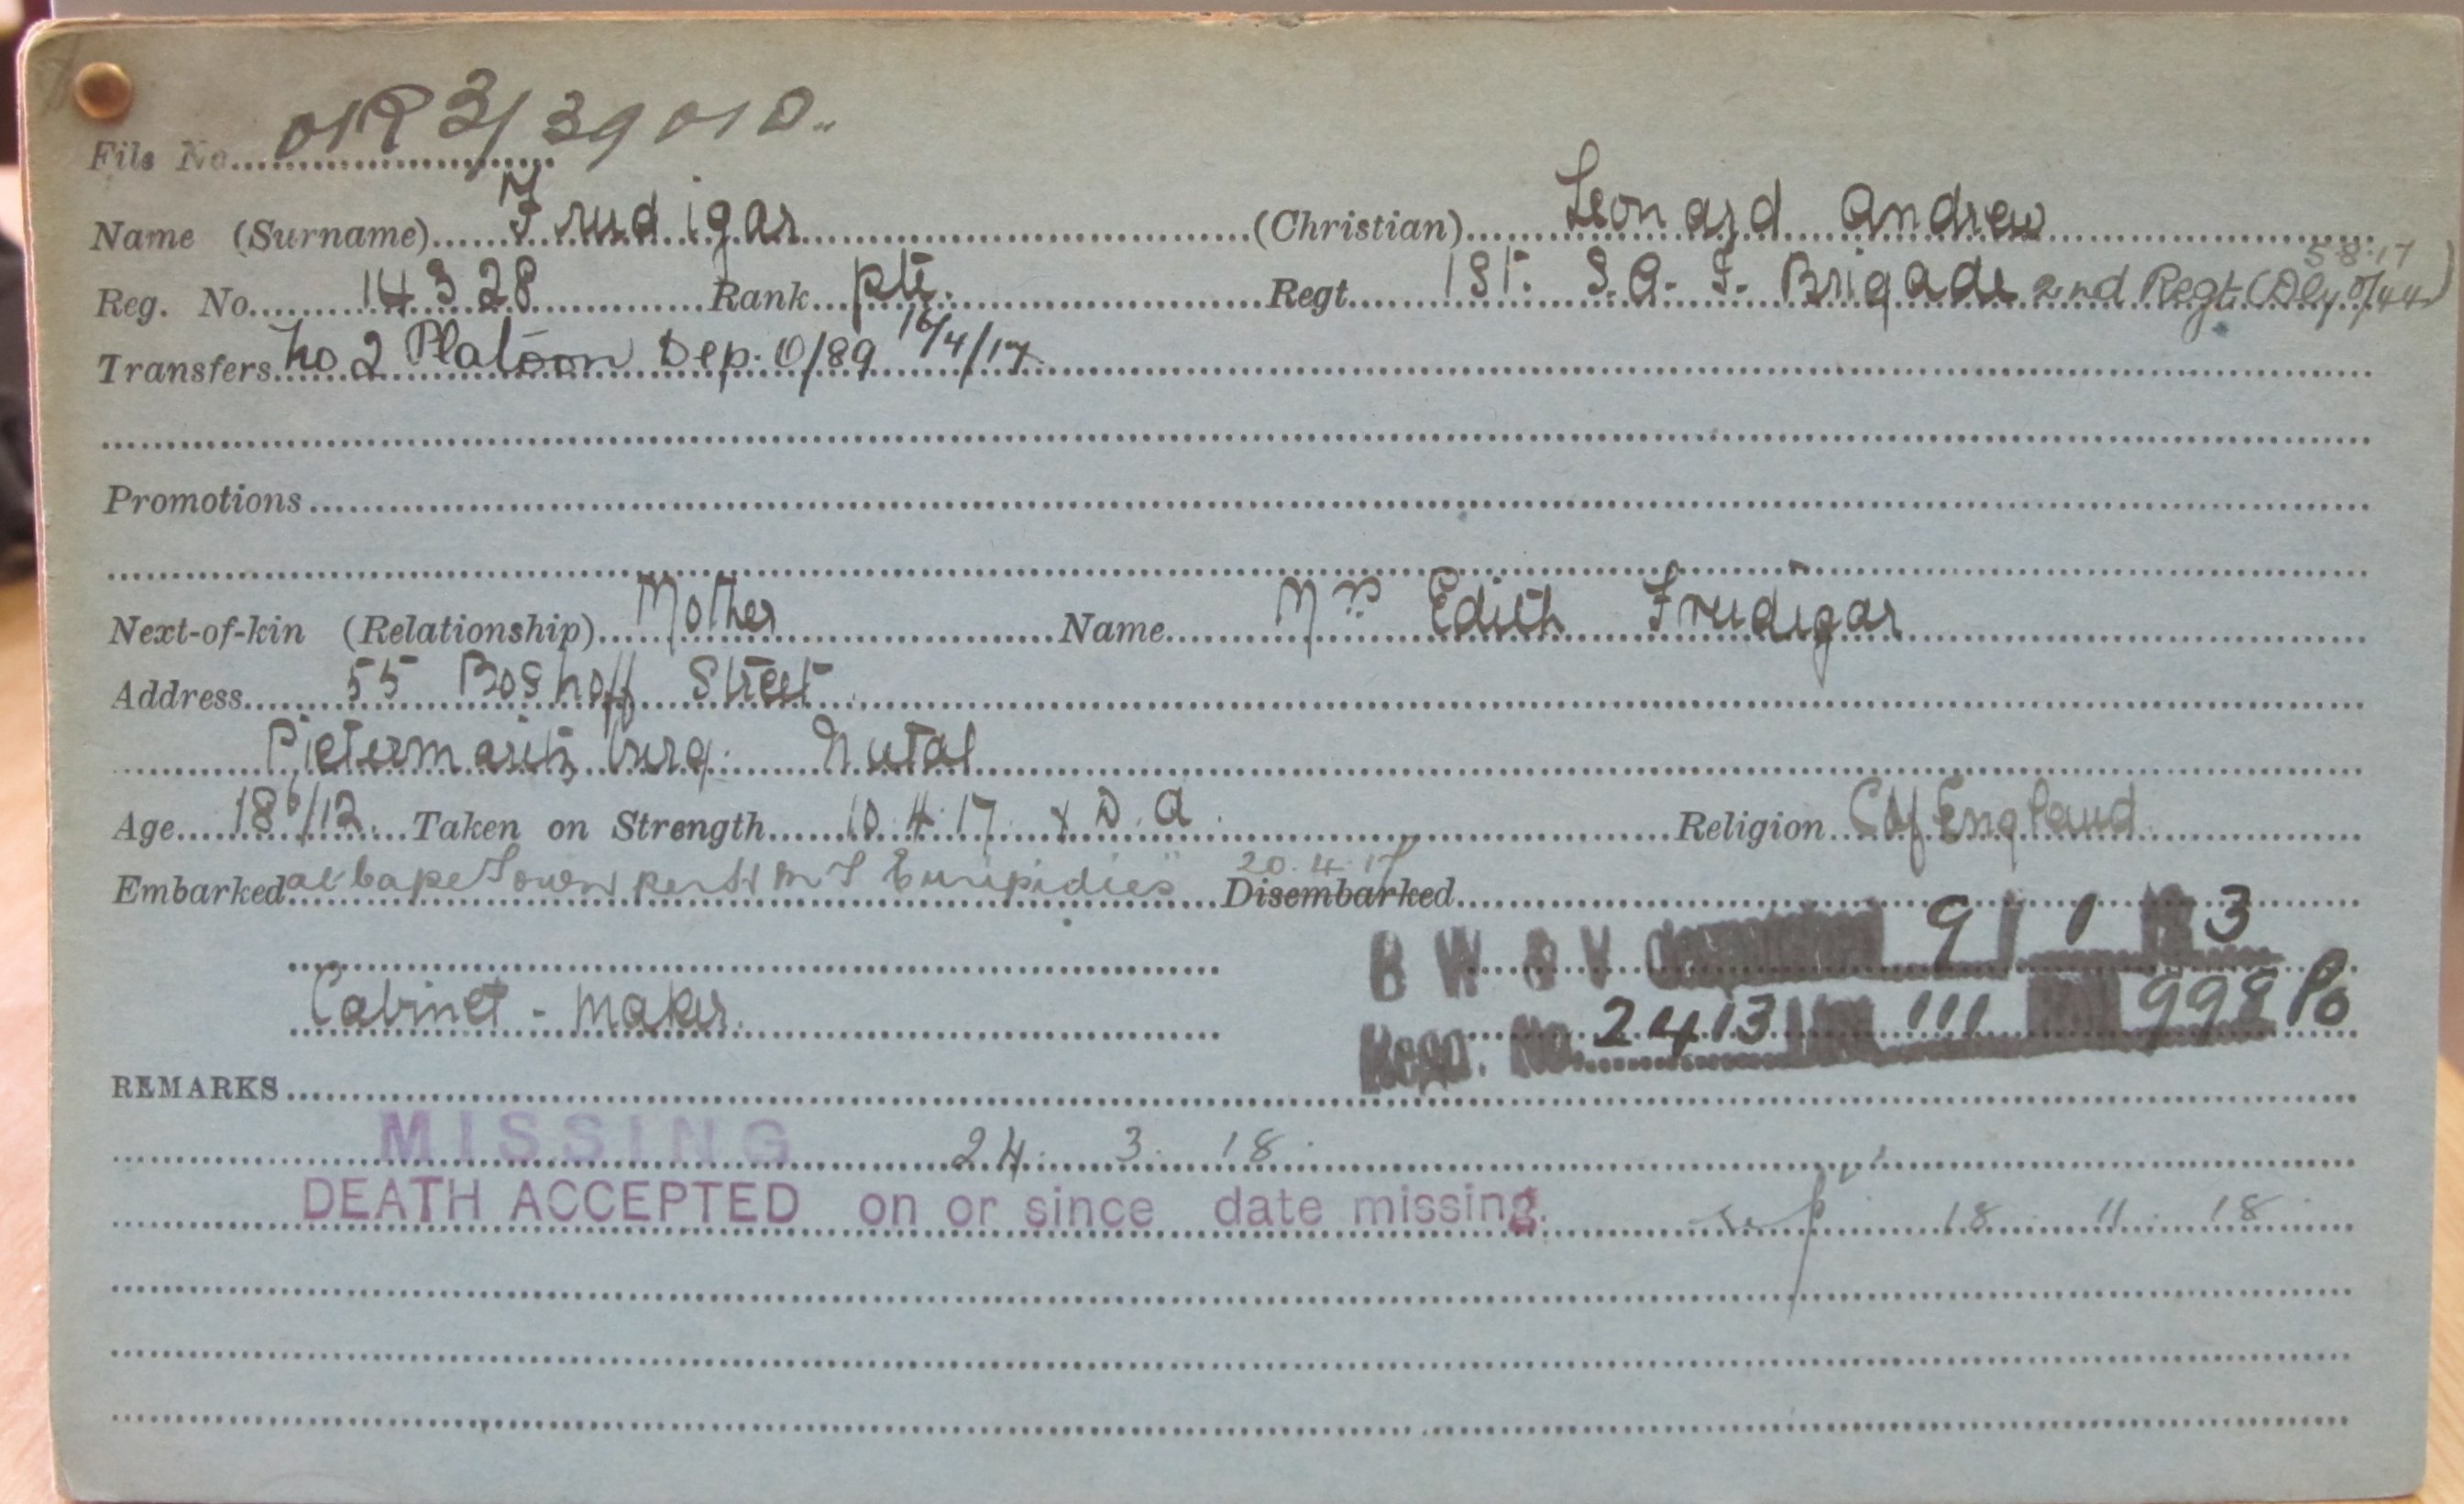 File No. O/R 3/39010.
Name (Surname) Frudigar (Christian) Leonard Andrew
5.8.17
Reg. No. 14328 Rank Pte. Regt. 1st. S.A. I. Brigade 2nd Regt (Dly O/44)
Transfers No 2 Platoon Dep. O/89 16/4/17
Promotions
Next-of-kin (Relationship) Mother Name Mrs Edith Frudigar
Address 55 Boshoff Street
Pietermaritzburg. Natal
Age 18 6/12 Taken on Strength 10.4.17 Religion C of England
Embarked at Cape Town per H M T Euripidies" 20.4.17 Disembarked
B W & V 9 1 3
Cabinet - maker.
Regd. No. 2413 111 998 Po
REMARKS
MISSING 24. 3. 18.
DEATH ACCEPTED on or since date missing. 18 . 11 . 18 .